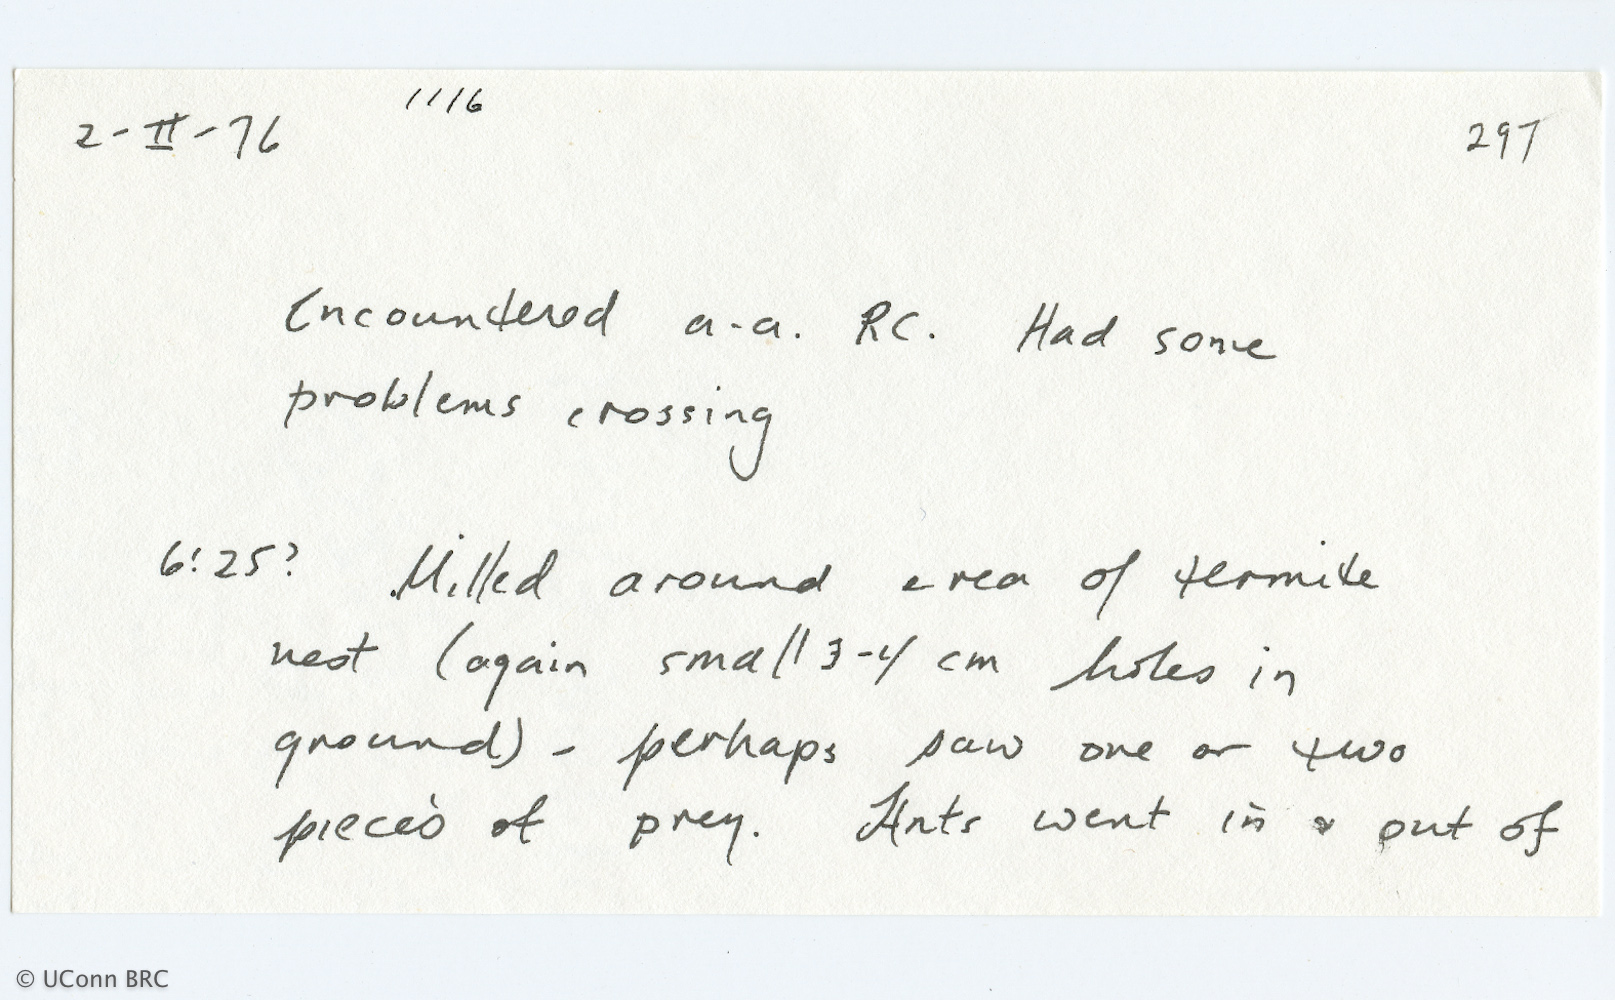 2-II-76
1116
297
Encountered a-a. RC. Had some
problems crossing
6:25? Milled around area of termite
nest (again small 3-4 cm holes in
ground) - perhaps saw one or two
pieces of prey. Ants went in & out of
© UConn BRC